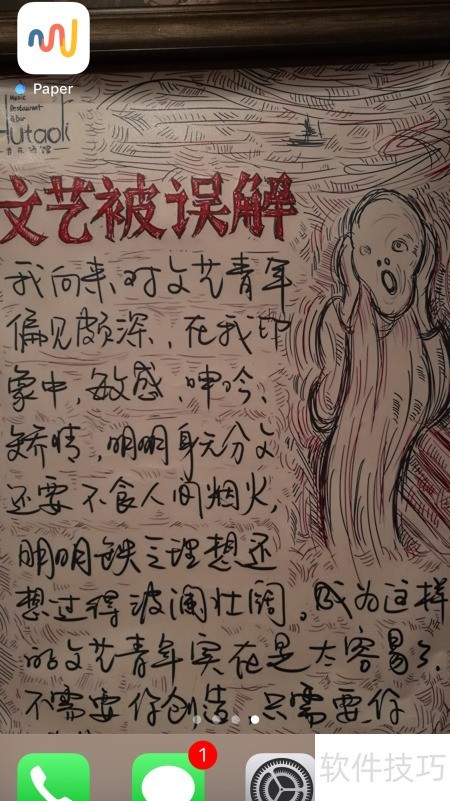 Paper
Music
Restaurant
&Bar
Hutaoli
音乐酒馆
文艺被误解
我向来对文艺青年
偏见颇深,在我印
象中,敏感、呻吟、
矫情,明明身无分文
还要不食人间烟火,
明明缺乏理想还
想过得波澜壮阔。成为这样
的文艺青年实在是太容易了.
不需要你创造,只需要你
1
软件技巧